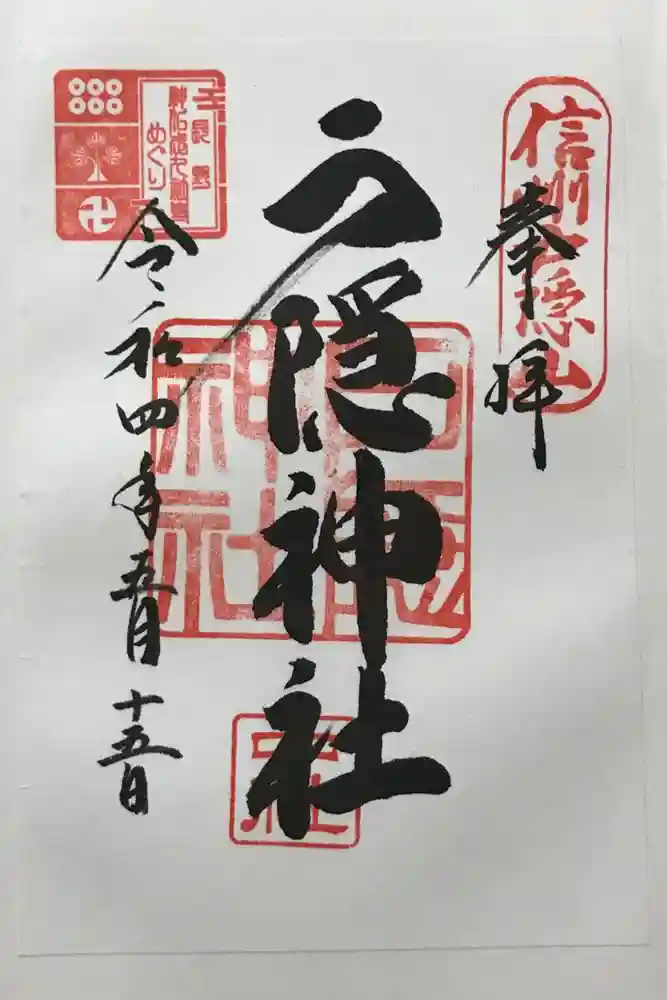 信州戸隠山
奉拝
戸隠神社
戸隠
神社
令和四年五月十五日
めぐり
卍